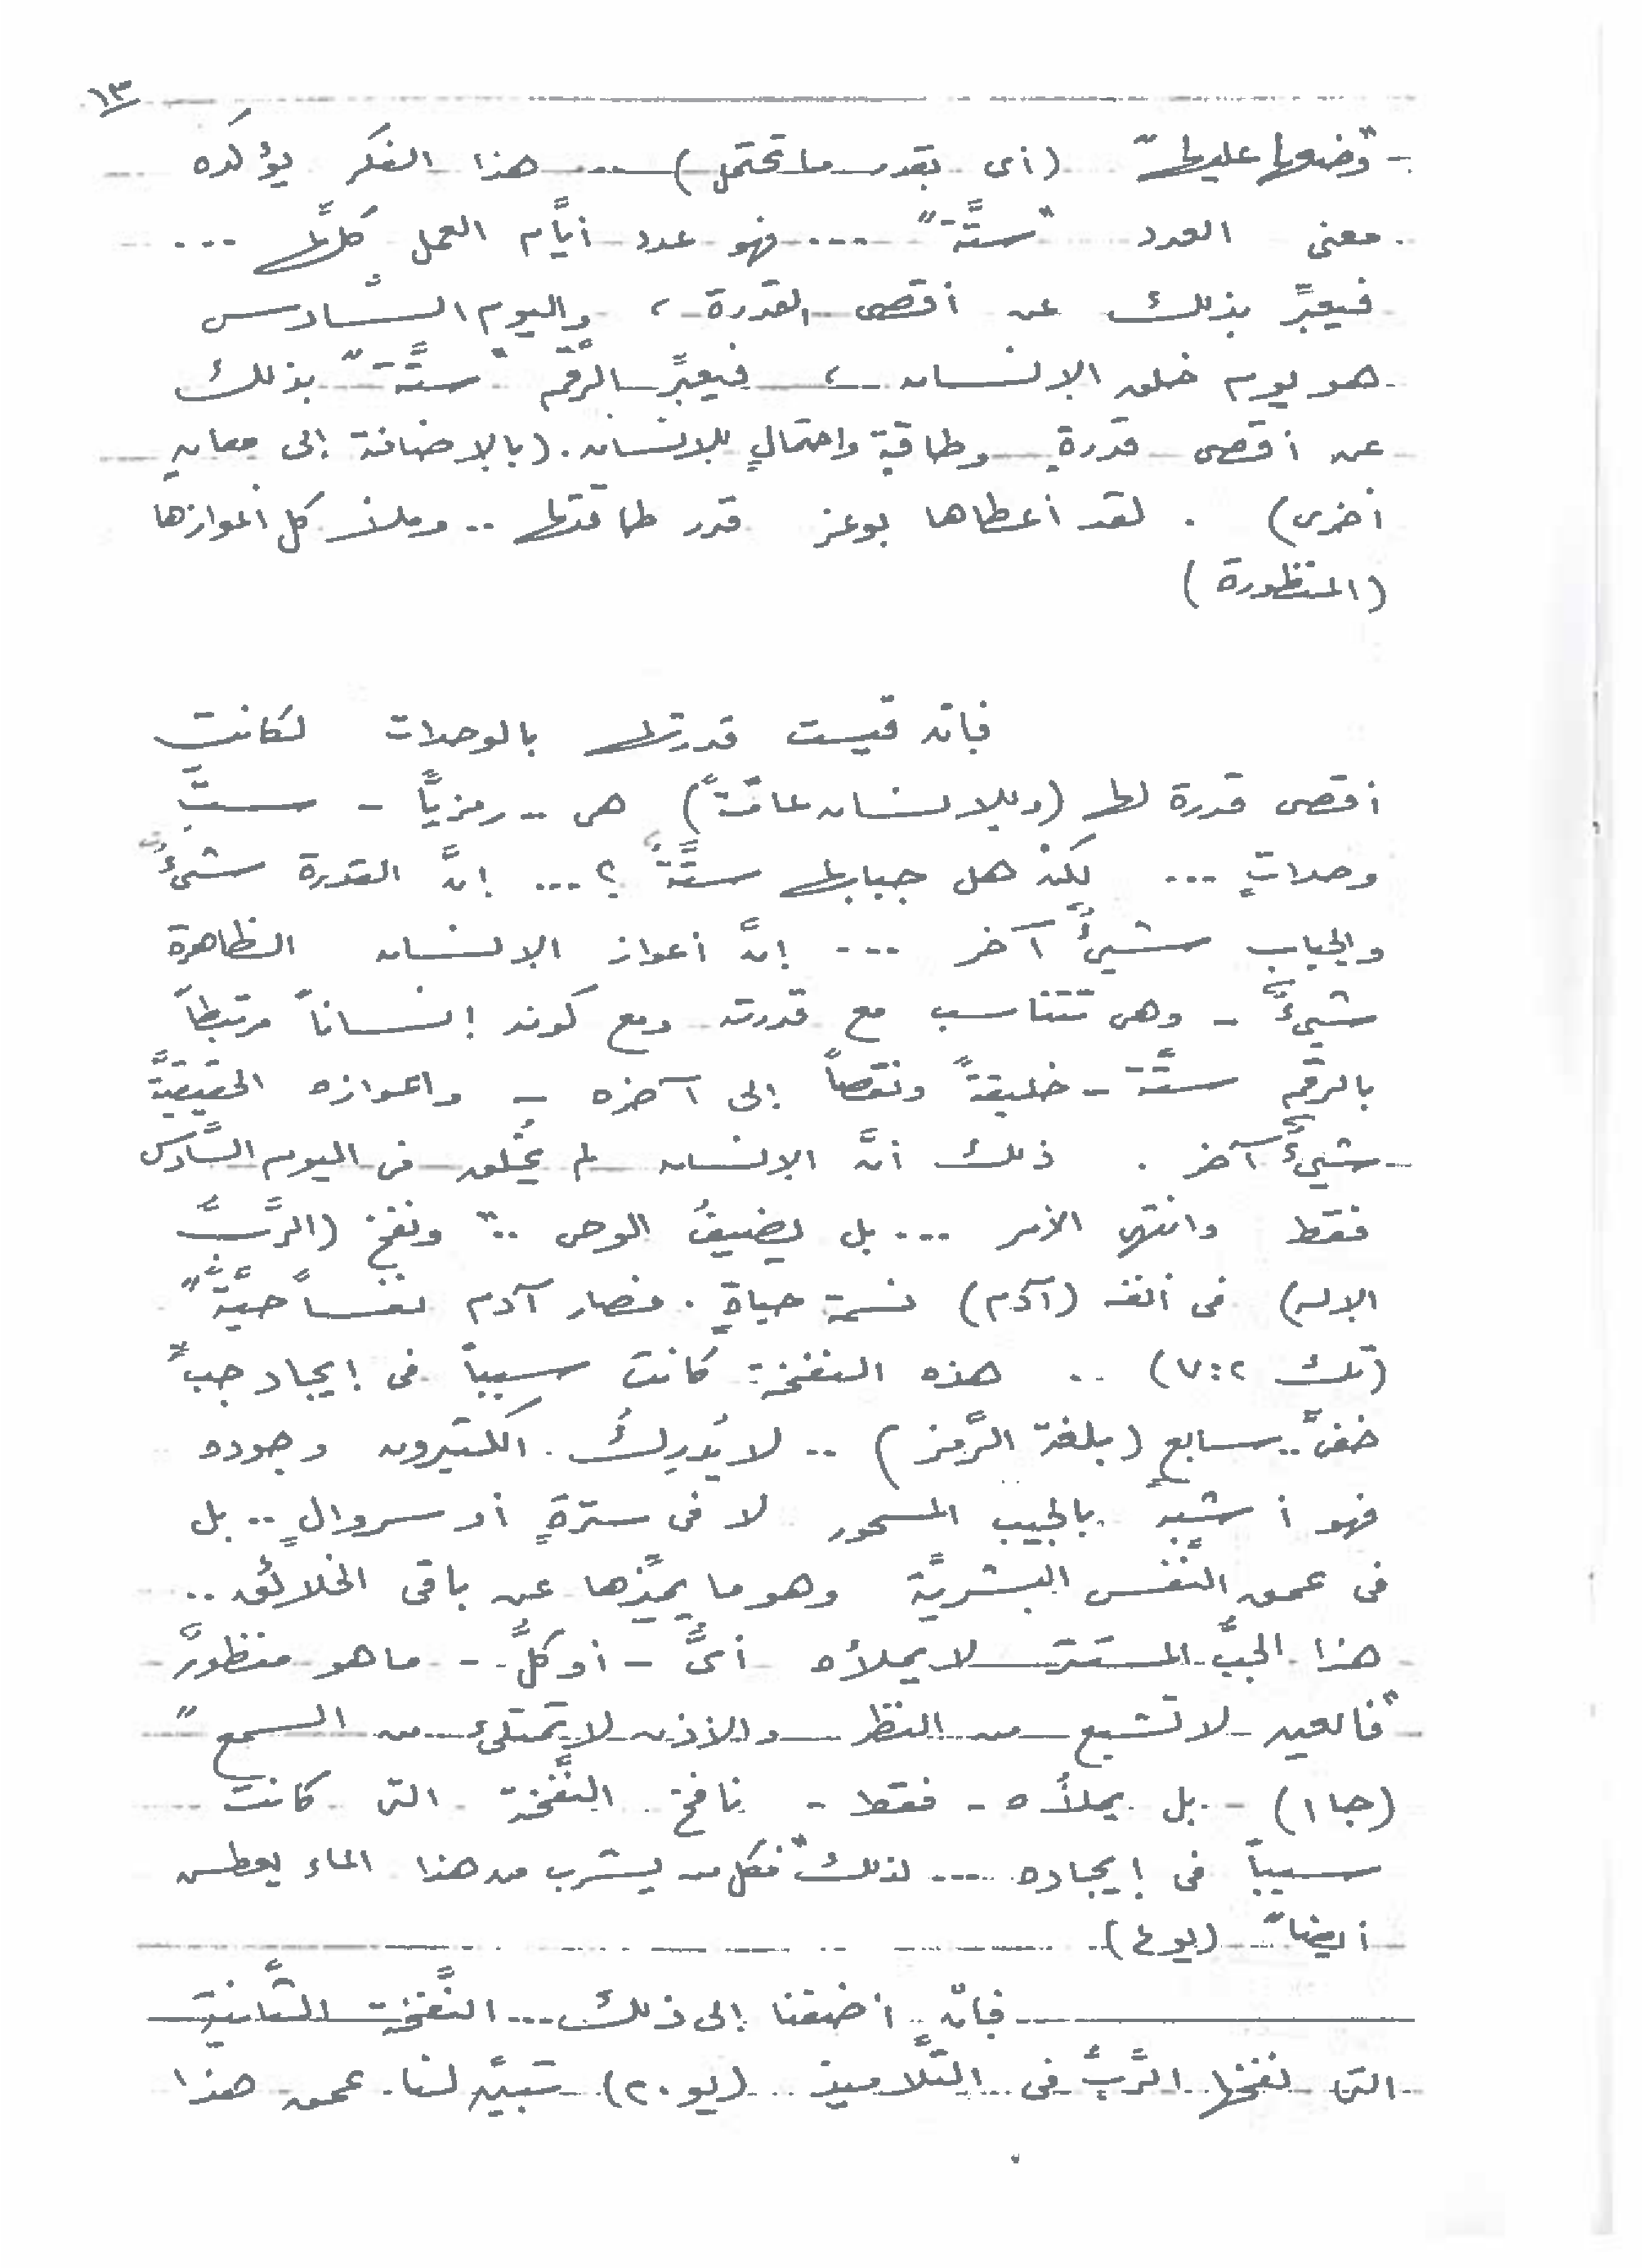 ١٣
"وضعها عليها" (أى بقدر ما تحتمل) .... هذا الفكر يؤكده
معنى العدد "ستَّة" .... فهو عدد أيَّام العمل كلِّها ...
فيعبِّر بذلك عن أقصى القدرة ، واليوم السَّادس
هو يوم خلق الإنسان ، فيعبِّر الرَّقم "ستَّة" بذلك
عن أقصى قدرةٍ وطاقةٍ واحتمالٍ للإنسان . (بالإضافة إلى معانٍ
أخرى) . لقد أعطاها بوعز قدر طاقتها .. وملأ كل أعوازها
(المنظورة)
فإن قيست قدرتها بالوحدات لكانت
أقصى قدرة لها (وللإنسان عامّةً) هى .. رمزيًّا - ستّ
وحداتٍ ... لكن هل جبابها ستَّةٌ ؟ ... إنَّ القدرة شىءٌ
والجباب شيءٌ آخر ... إنَّ أعواز الإنسان الظاهرة
شيءٌ - وهى تتناسب مع قدرته ومع كونه إنساناً مرتبطاً
بالرقم ستَّة - خليقةً ونقصاً إلى آخره - وأعوازه الحقيقيَّة
شيءٌ آخر . ذلك أنَّ الإنسان لم يُخلق فى اليوم السَّادس
فقط وانتهى الأمر ... بل يضيفُ الوحى .. "ونفخ (الرَّبُّ
الإله) فى أنفه (آدم) نسمة حياةٍ . فصار آدم نفساً حيَّةً"
(تك ٢:٧) .. هذه النفخة كانت سبباً فى إيجاد جبٍّ
خفىٍّ .. سابعٍ (بلغة الرَّمز) .. لا يُدرِكُ الكثيرون وجوده
فهو أشبه بالجيب المسحور لا فى سترةٍ أو سروالٍ .. بل
فى عمق النَّفس البشريَّة وهو ما يميِّزها عن باقى الخلائق ..
هذا الجبُّ المستتر لا يملأه أىُّ - أو كلُّ - ما هو منظورٌ
"فالعين لا تشبع من النظر والأذن لا تمتلئ من السمع"
(جا ١) - بل يملأُه - فقط - نافخ النَّفخة التى كانت
سبباً فى إيجاده .... لذلك "فكل من يشرب من هذا الماء يعطس
أيضاً" (يو ٤)
فإن أضفنا إلى ذلك ... النَّفخة الثَّانية
التى نفخها الرَّبُّ فى التَّلاميذ (يو ٢٠) تتبيَّن لنا عمق هذا